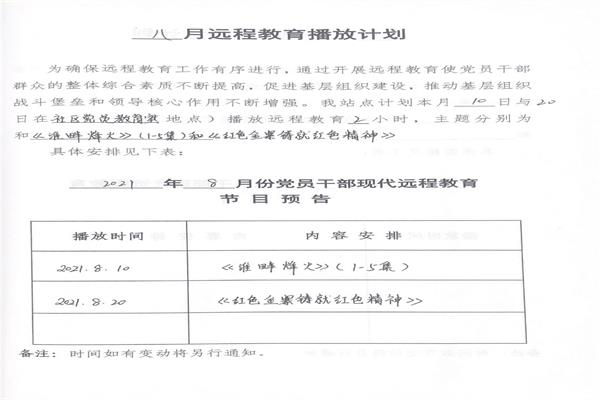 八 月远程教育播放计划
为确保远程教育工作有序进行，通过开展远程教育使党员干部
群众的整体综合素质不断提高，促进基层组织建设，推动基层组织
战斗堡垒和领导核心作用不断增强。我站点计划本月 10 日与20
日在社区党员教育室地点）播放远程教育 2 小时，主题分别为
和《淮畔烽火》（1-5集）和《红色金寨铸就红色精神》
具体安排见下表：
2021 年 8 月份党员干部现代远程教育
节目预告
播放时间 内容安排
2021.8.10 《淮畔烽火》（1-5集）
2021.8.20 《红色金寨铸就红色精神》
备注：时间如有变动将另行通知。